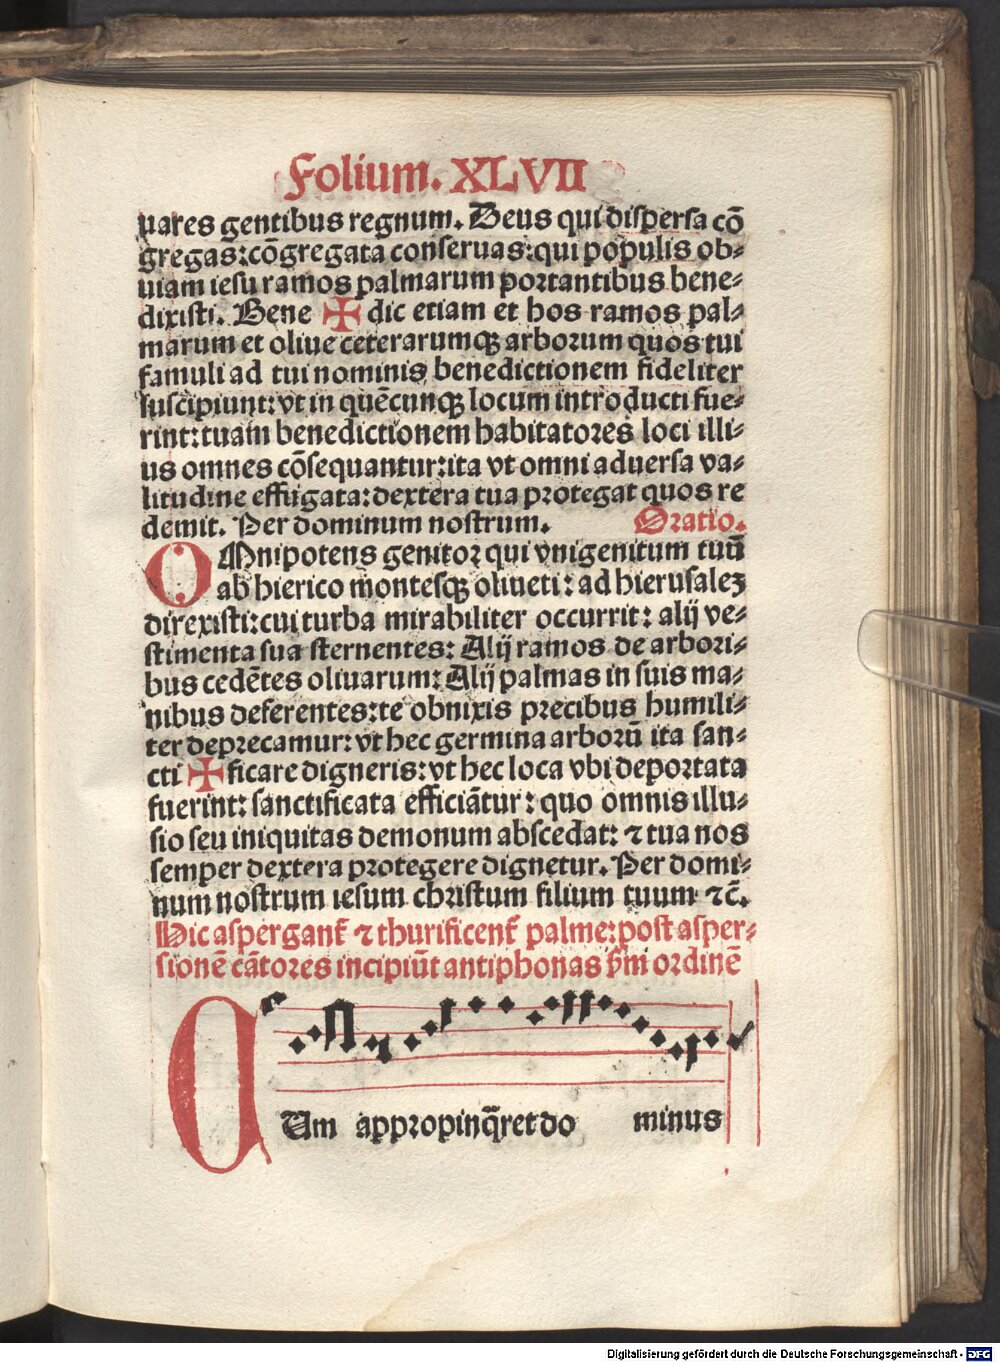 Folium. XLVII
uares gentibus regnum. Deus qui dispersa cō
gregas: cōgregata conseruas: qui populis ob⸗
uiam iesu ramos palmarum portantibus bene⸗
dixisti. Bene ✠ dic etiam et hos ramos pal⸗
marum et oliue ceterarumqꝫ arborum quos tui
famuli ad tui nominis benedictionem fideliter
suscipiunt: vt in quēcunqꝫ locum introducti fue⸗
rint: tuam benedictionem habitatores loci illi⸗
us omnes cōsequantur: ita vt omni aduersa va⸗
litudine effugata: dextera tua protegat quos re
demit. Per dominum nostrum. Oratio.
OMnipotens genitor qui vnigenitum tuū
ab hierico montesqꝫ oliueti: ad hierusaleꝫ
direxisti: cui turba mirabiliter occurrit: alij ve⸗
stimenta sua sternentes: Alij ramos de arbori⸗
bus cedētes oliuarum: Alij palmas in suis ma⸗
nibus deferentes: te obnixis precibus humili⸗
ter deprecamur: vt hec germina arborū ita san⸗
cti ✠ ficare digneris: vt hec loca vbi deportata
fuerint: sanctificata efficiātur: quo omnis illu⸗
sio seu iniquitas demonum abscedat: ⁊ tua nos
semper dextera protegere dignetur. Per domi⸗
num nostrum iesum christum filium tuum ⁊c̄.
Hic aspergant̄ ⁊ thurificent̄ palme: post asper⸗
sionē cātores incipiūt antiphonas s̄m ordinē
CUm appropinq̄ret do minus
Digitalisierung gefördert durch die Deutsche Forschungsgemeinschaft - DFG